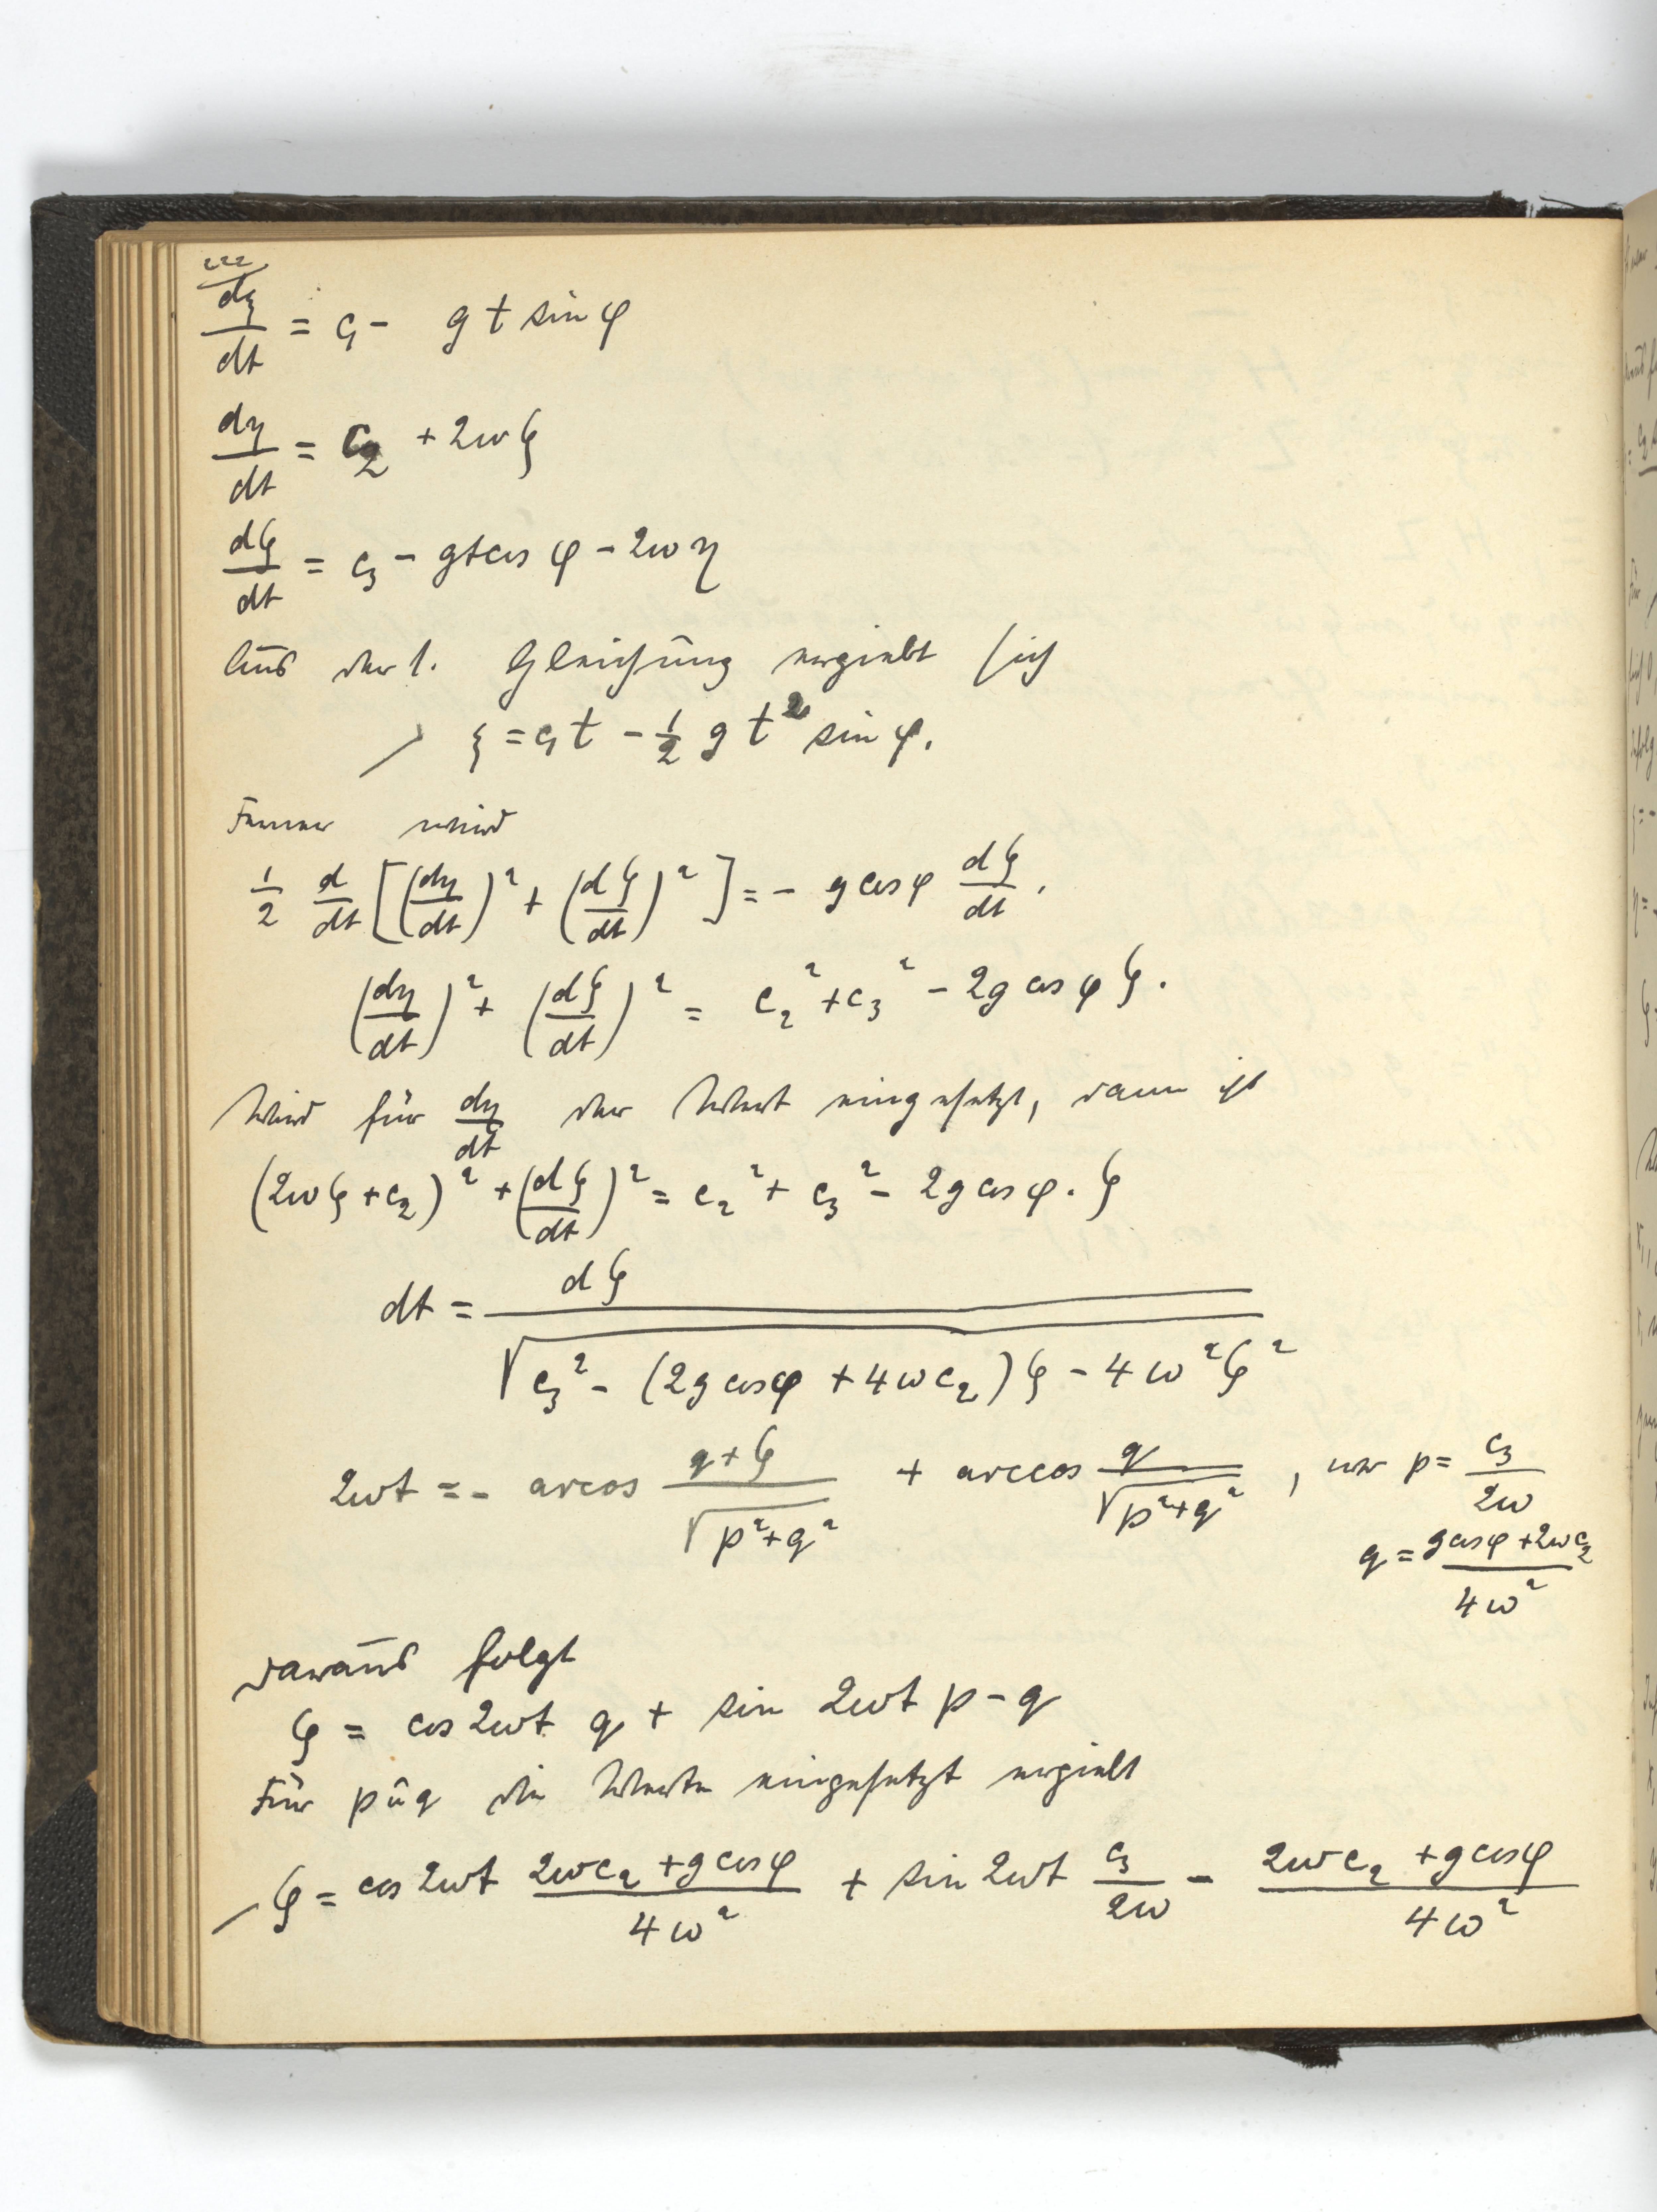 dξ/dt = c₁ - g t sin φ
dη/dt = c₂ + 2ωζ
dζ/dt = c₃ - gt cos φ - 2ωη
Aus der 1. Gleichung ergiebt sich
ξ = c₁t - 1/2 g t² sin φ.
Ferner wird
1/2 d/dt [(dη/dt)² + (dζ/dt)²] = - g cos φ dζ/dt.
(dη/dt)² + (dζ/dt)² = c₂² + c₃² - 2g cos φ ζ.
Wird für dη/dt der Wert eingesetzt, dann ist
(2ωζ + c₂)² + (dζ/dt)² = c₂² + c₃² - 2g cos φ . ζ
dt = dζ / √(c₃² - (2g cos φ + 4ωc₂)ζ - 4ω²ζ²)
2ωt = - arcos (q+ζ)/√(p²+q²) + arccos q/√(p²+q²), wo p = c₃/2ω
q = (g cos φ + 2ωc₂)/4ω²
Daraus folgt
ζ = cos 2ωt q + sin 2ωt p - q
Für p u q die Werte eingesetzt ergiebt
ζ = cos 2ωt (2ωc₂ + g cos φ)/4ω² + sin 2ωt c₃/2ω - (2ωc₂ + g cos φ)/4ω²